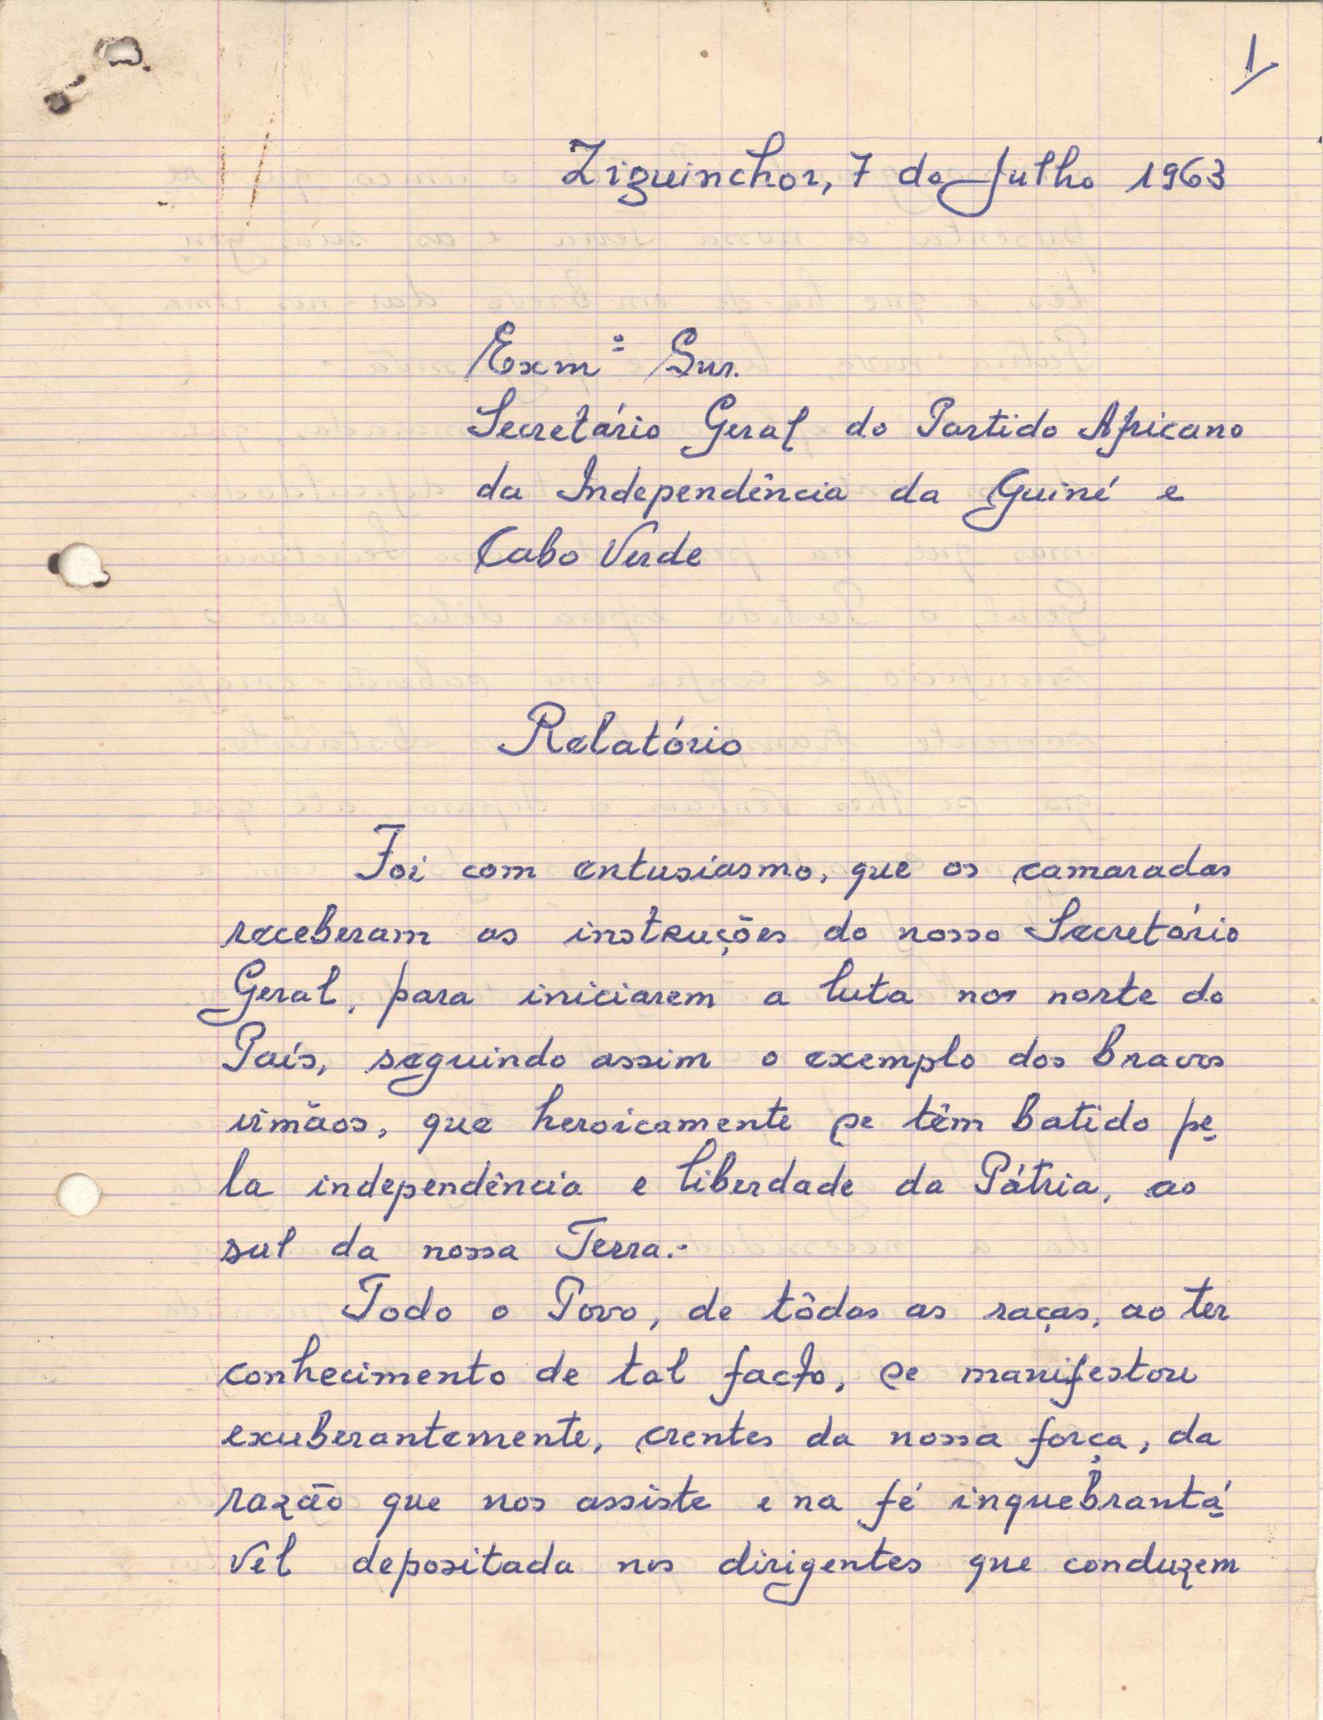 1/
Ziguinchor, 7 de Julho 1963
Exmº Snr.
Secretário Geral do Partido Africano
da Independência da Guiné e
Cabo Verde
Relatório
Foi com entusiasmo, que os camaradas
receberam as instruções do nosso Secretário
Geral, para iniciarem a luta no norte do
País, seguindo assim o exemplo dos bravos
irmãos, que heroicamente se têm batido pe
la independência e liberdade da Pátria, ao
sul da nossa Terra.-
Todo o Povo, de tôdas as raças, ao ter
conhecimento de tal facto, se manifestou
exuberantemente, crentes da nossa força, da
razão que nos assiste e na fé inquebrantá
vel depositada nos dirigentes que conduzem